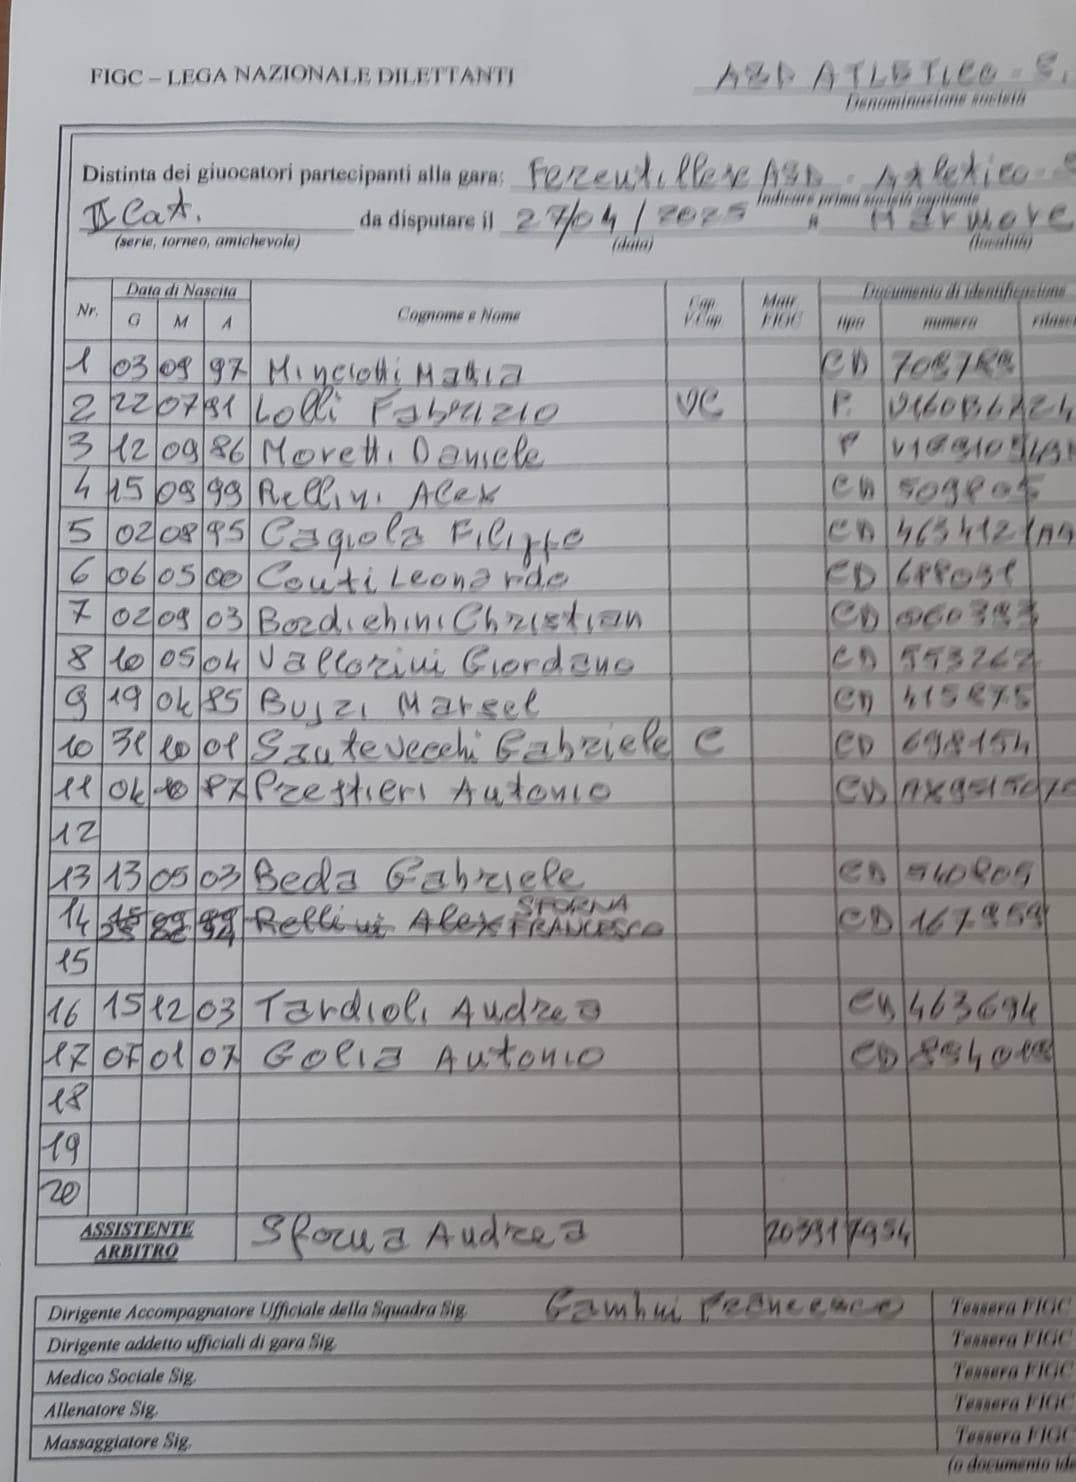 FIGC – LEGA NAZIONALE DILETTANTI
ASD ATLETICO - S.
Denominazione società
Distinta dei giuocatori partecipanti alla gara: Ferentillese ASD - Atletico - S
Indicare prima società ospitante
II Cat. da disputare il 27/04/2025 a Marmore
(serie, torneo, amichevole) (data) (località)
Nr. Data di Nascita Cognome e Nome Cap. V.Cap. Matr. FIGC Documento di identificazione
G M A tipo numero rilasc
1 03 09 97 Minciotti Mattia CD
2 22 07 91 Lolli Fabrizio VC P.
3 12 09 86 Moretti Daniele P
4 15 09 99 Rellini Alex CD
5 02 08 95 Cagiola Filippo CD
6 06 05 00 Conti Leonardo CD
7 02 09 03 Bordichini Christian CD
8 10 05 04 Vallorini Giordano CD
9 19 04 85 Buszi Marsel CD
10 31 10 01 Santevecchi Gabriele C CD 698154
11 04 10 87 Prestieri Antonio CD
12
13 13 05 03 Beda Gabriele CD
14 Rellini Alex SFORNA FRANCESCO CD
15
16 15 12 03 Tardioli Andrea CD 463694
17 07 01 07 Golia Antonio CD
18
19
20
ASSISTENTE ARBITRO Sforna Andrea
Dirigente Accompagnatore Ufficiale della Squadra Sig. Francesco Tessera FIGC
Dirigente addetto ufficiali di gara Sig. Tessera FIGC
Medico Sociale Sig. Tessera FIGC
Allenatore Sig. Tessera FIGC
Massaggiatore Sig. Tessera FIGC
(o documento ide